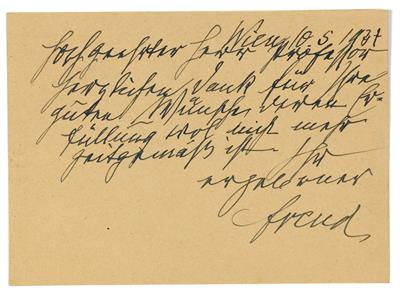 Wien 10. 5. 1937
Hochgeehrter Herr Professor
Herzlichen Dank für Ihre
guten Wünsche deren Er-
füllung wol nicht mehr
zeitgemäß ist. Ihr
ergebener
Freud